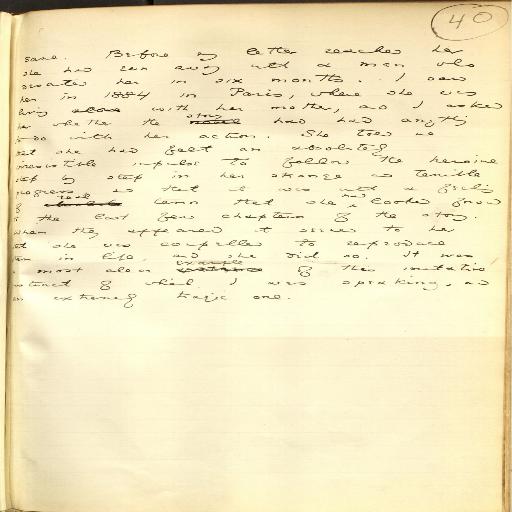 40
same. Before my letter reached her
she had run away with a man who
deserted her in six months. I saw
her in 1884 in Paris, where she was
living alone with her mother, and I asked
her whether the novel story had had anything
to do with her action. She told me
that she had felt an absolutely
irresistible impulse to follow the heroine
step by step in her strange and terrible
progress and that it was with a feeling
of real terror that she had looked forward
to the last few chapters of the story.
When they appeared it seemed to her
that she was compelled to reproduce
them in life, and she did so. It was
a most clear example of this imitative
instinct of which I was speaking, and
an extremely tragic one.